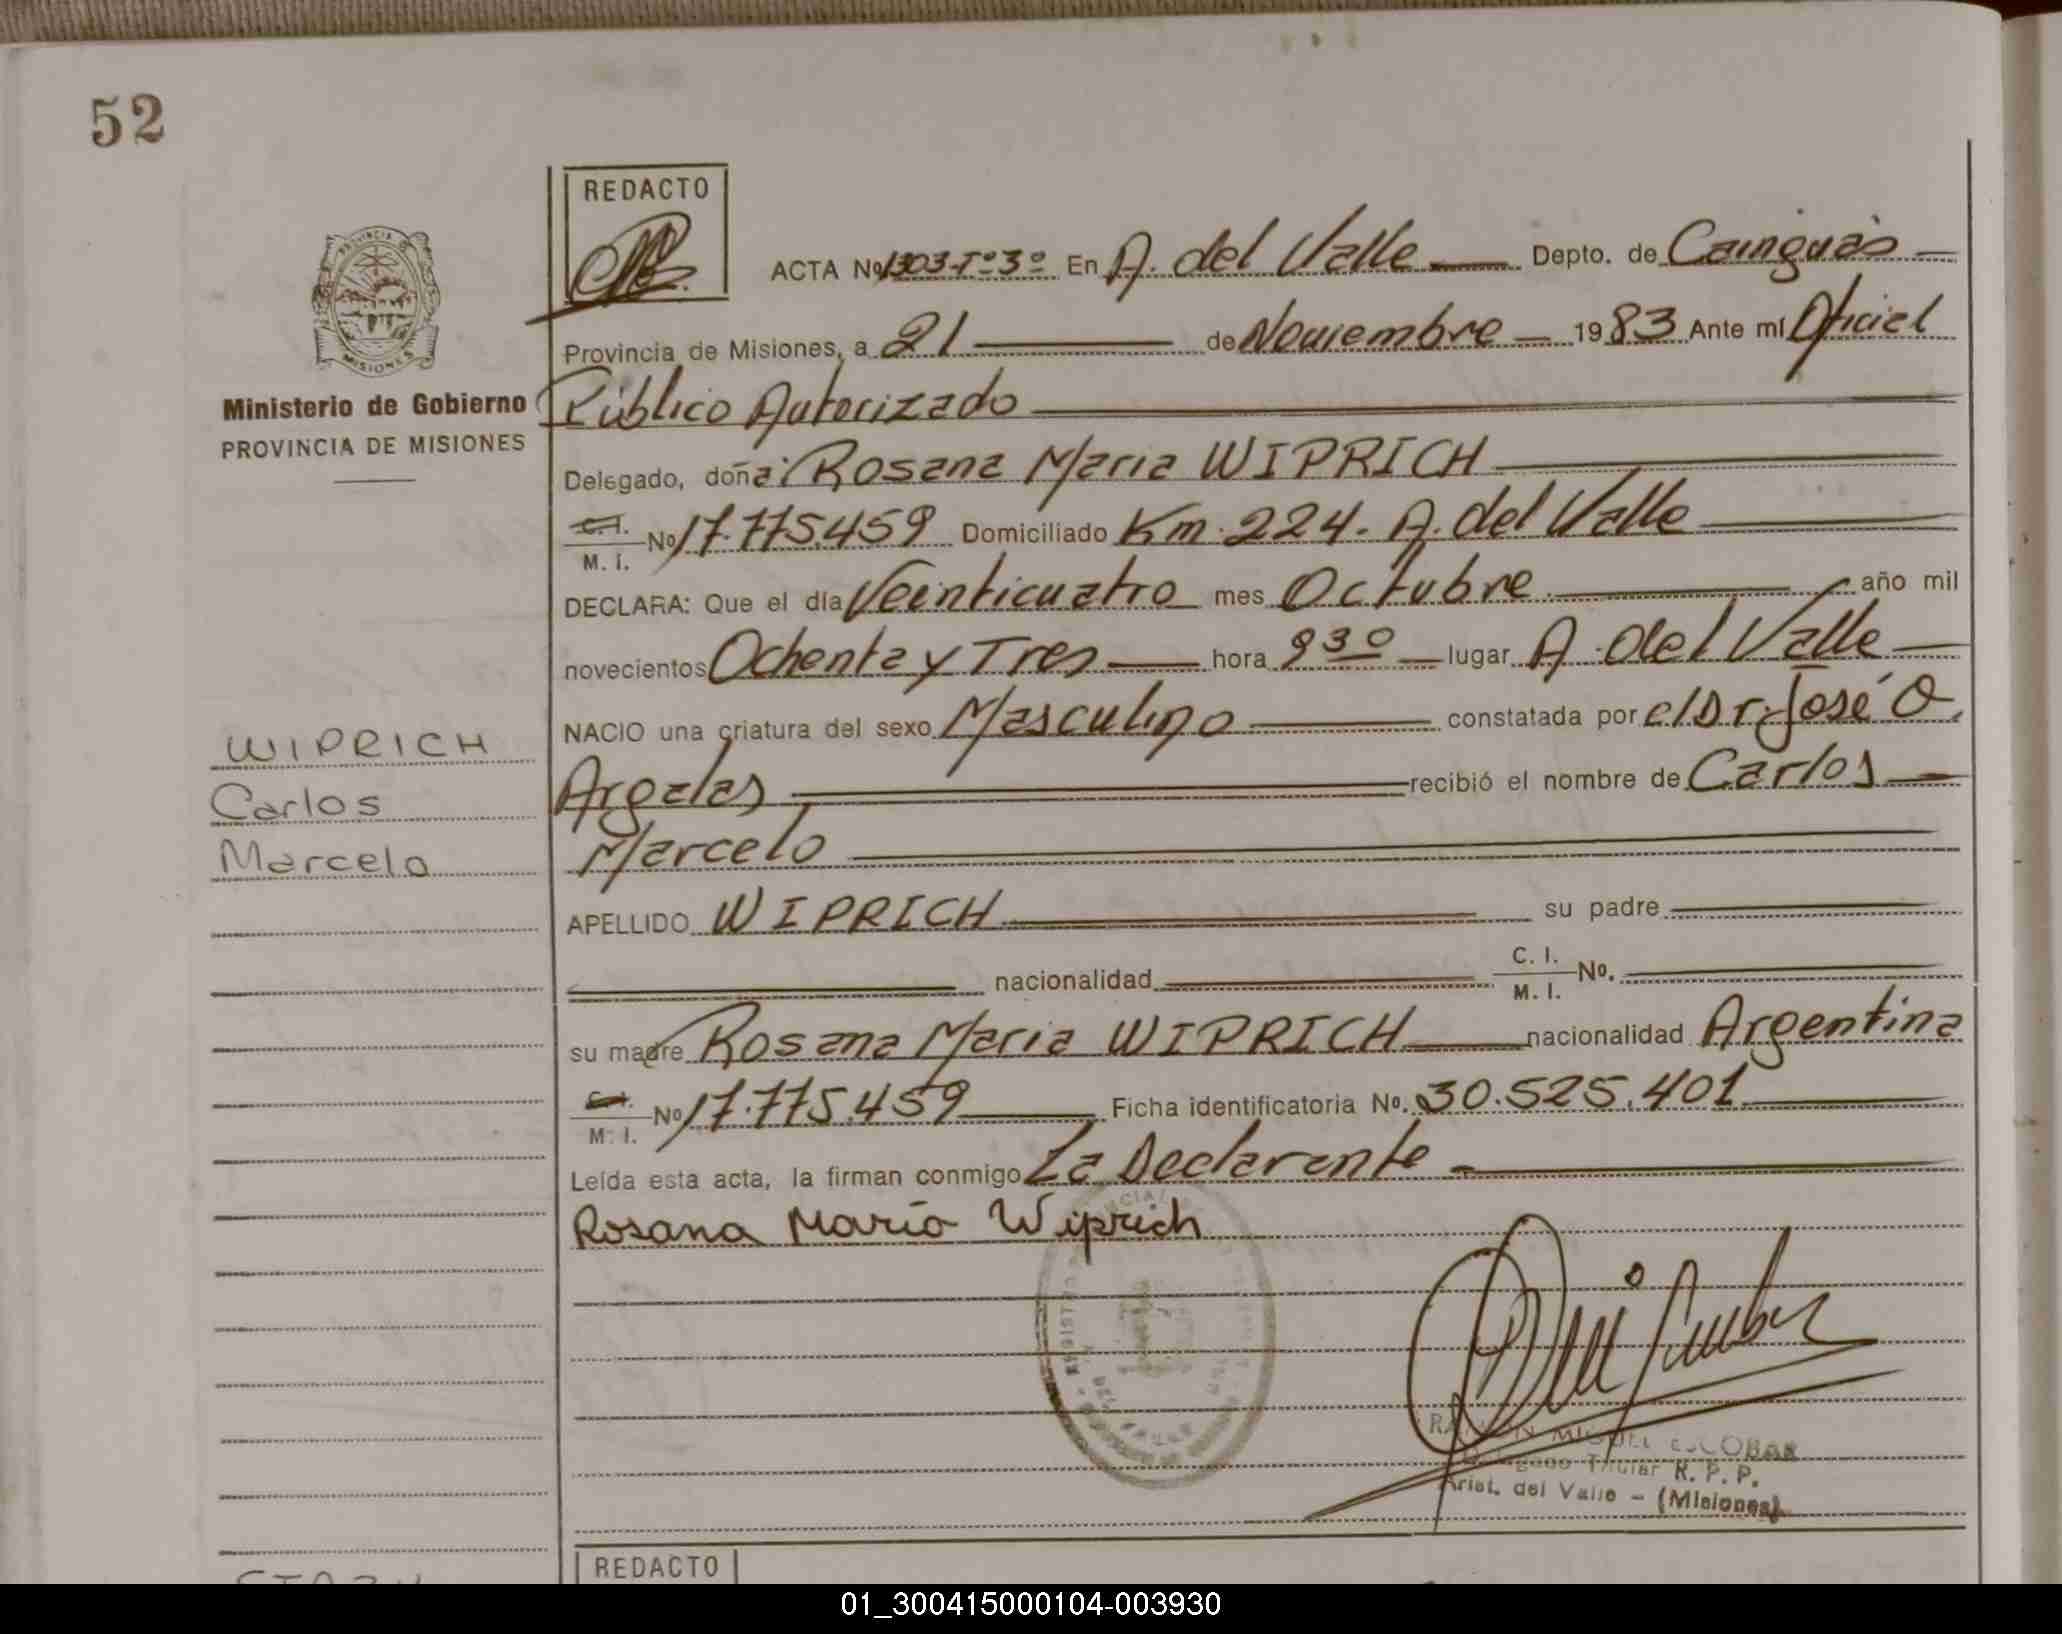 52
REDACTO
ACTA Nº 1303-Tº3º En A. del Valle Depto. de Cainguás
Provincia de Misiones, a 21 de Noviembre 1983 Ante mí Oficial
Ministerio de Gobierno
PROVINCIA DE MISIONES
Público Autorizado
Delegado, doña: Rosana Maria WIPRICH
C.I. M. I. Nº 17.775.459 Domiciliado Km. 224. A. del Valle
DECLARA: Que el día Veinticuatro mes Octubre año mil
novecientos Ochenta y Tres hora 9 30 lugar A. del Valle
NACIO una criatura del sexo Masculino constatada por el Dr. José O.
WIPRICH
Carlos
Marcelo
Argalas recibió el nombre de Carlos
Marcelo
APELLIDO WIPRICH su padre
nacionalidad C. I. M. I. Nº.
su madre Rosana Maria WIPRICH nacionalidad Argentina
C.I. M. I. Nº 17.775.459 Ficha identificatoria Nº. 30.525.401
Leída esta acta, la firman conmigo La Declarante
Rosana María Wiprich
RAMON MIGUEL ESCOBAR
Titular R. P. P.
Arist. del Valle - (Misiones)
REDACTO
01_300415000104-003930